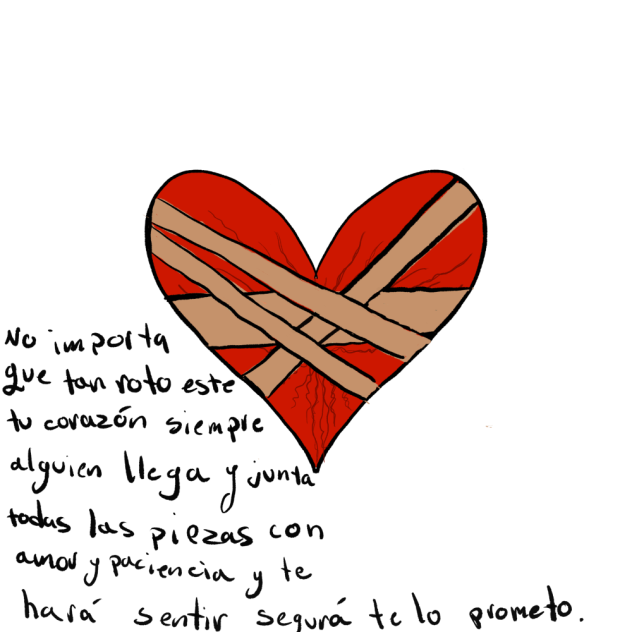 No importa
que tan roto este
tu corazón siempre
alguien llega y junta
todas las piezas con
amor y paciencia y te
hará sentir segurá te lo prometo.